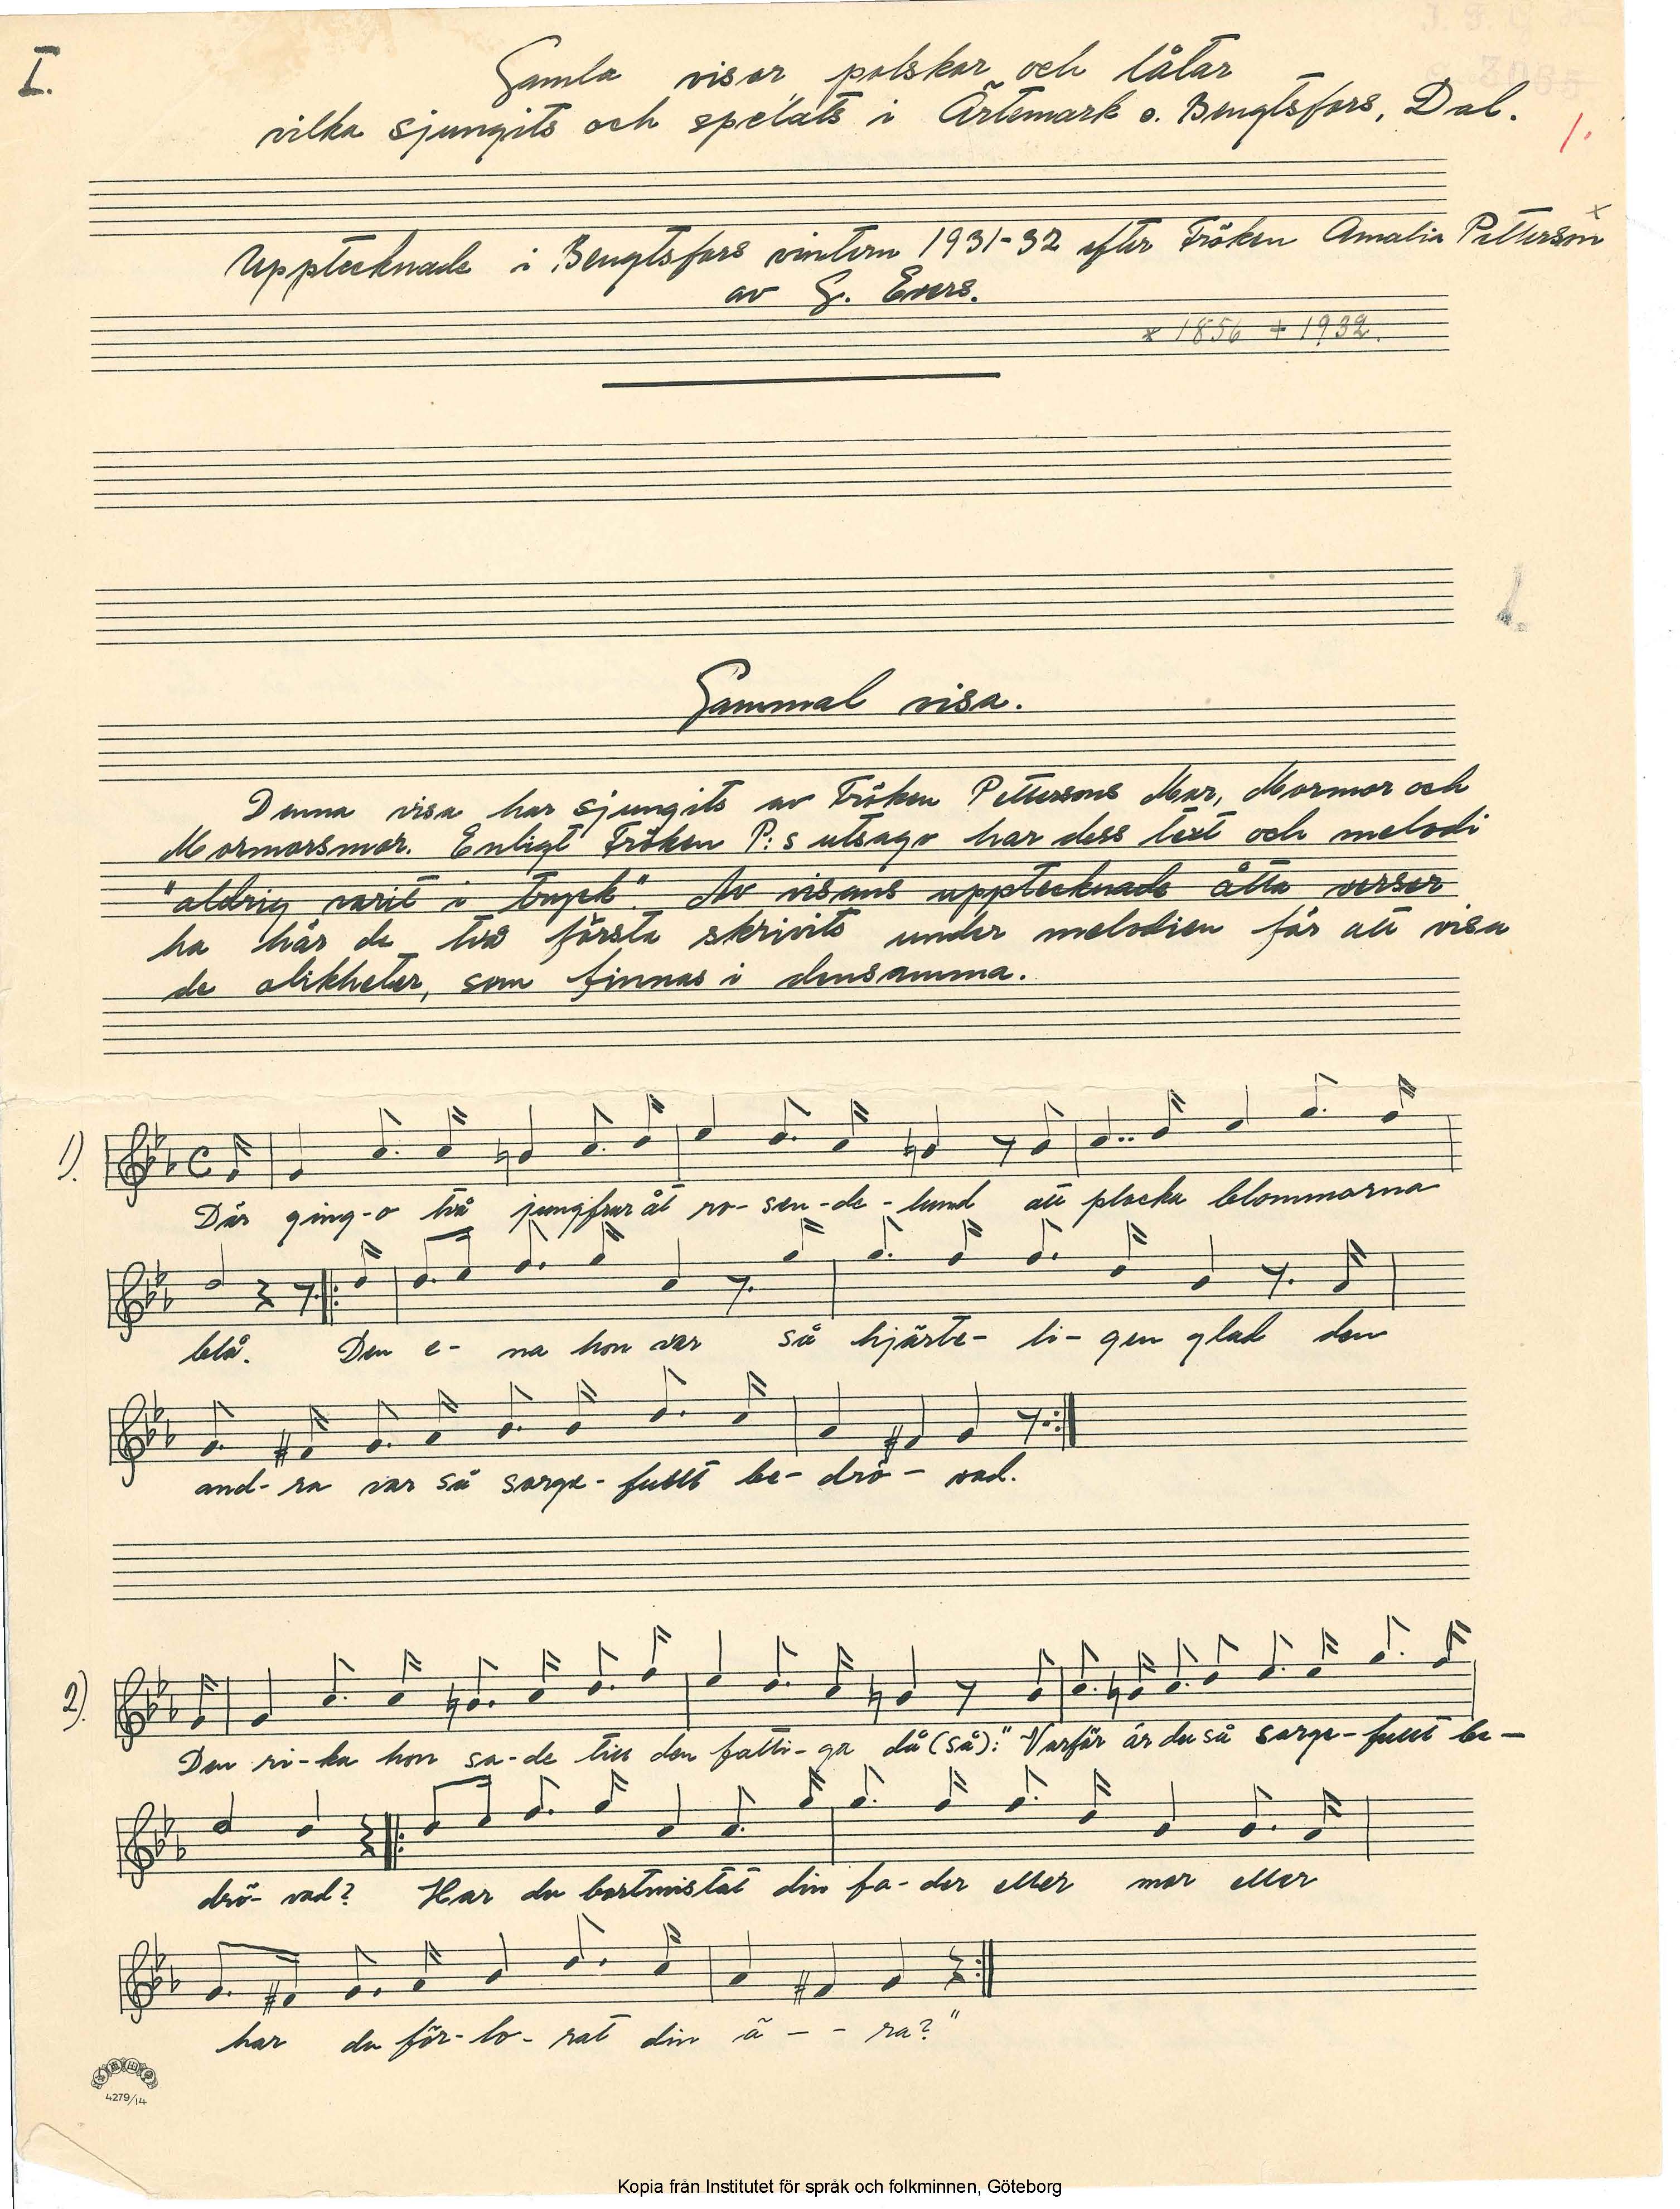 I.
Gamla visor, polskor och låtar
vilka sjungits och spelats i Ärtemark o. Bengtsfors, Dal.
1.
Upptecknade i Bengtsfors vintern 1931-32 efter Fröken Amalia Petterson x
av G. Evers.
* 1856 + 1932.
1.
Gammal visa.
Denna visa har sjungits av Fröken Pettersons Mor, Mormor och
Mormorsmor. Enligt Fröken P:s utsago har dess text och melodi
"aldrig varit i tryck". Av visans upptecknade åtta verser
ha här de två första skrivits under melodien för att visa
de olikheter, som finnas i densamma.
1).
Där ging-o två jungfrur åt ro-sen-de-lund att plocka blommorna
blå. Den e-na hon var så hjärte-li-gen glad den
and-ra var så sorge-fullt be-drö-vad.
2).
Den ri-ka hon sa-de till den fatti-ga då (så): "Varför är du så sorge-fullt be-
drö-vad? Har du bortmistat din fa-der eller mor eller
har du för-lo-rat din ä--ra?"
4279/14
Kopia från Institutet för språk och folkminnen, Göteborg